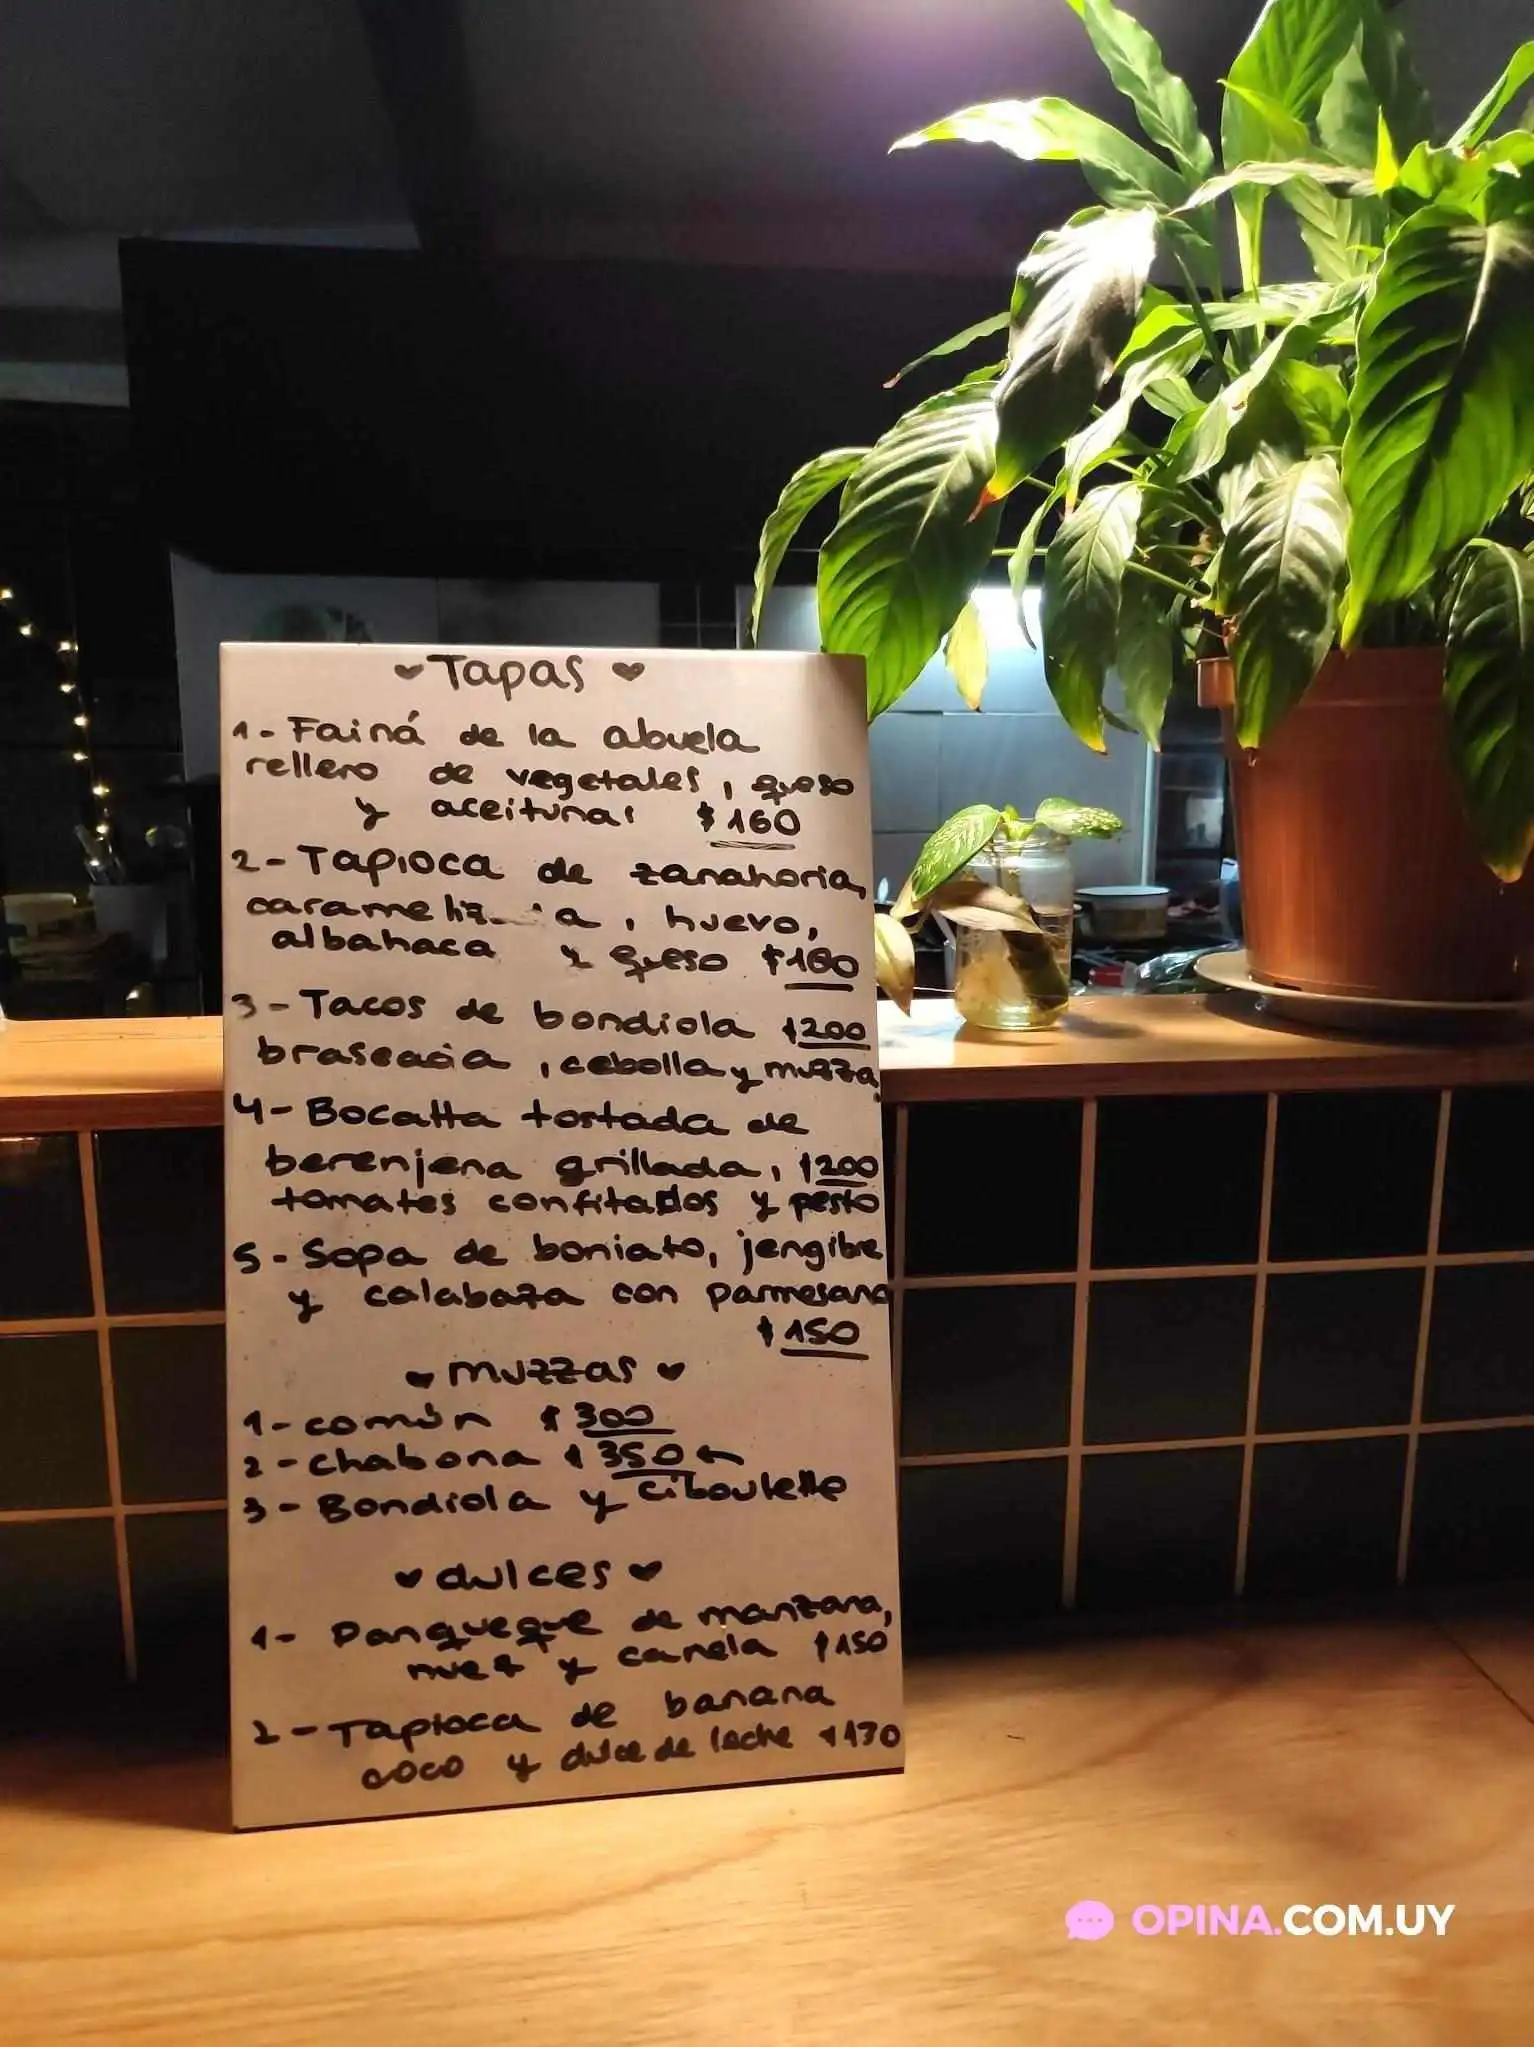 Tapas
1-Fainá de la abuela
relleno de vegetales, queso
y aceitunas $160
2-Tapioca de zanahoria,
huevo,
albahaca y queso
3-Tacos de bondiola $200
braseada, cebolla y muzza
4-Bocatta tostada de
berenjena grillada, $200
tomates confitados y pesto
5-Sopa de boniato, jengibre
y calabaza con parmesano
$150
muzzas
1-común $300
2-chabona $350 ←
3-Bondiola y ciboulette
dulces
1- Panqueque de manzana,
nuez y canela $150
2-Tapioca de banana
coco y dulce de leche $170
OPINA.COM.UY